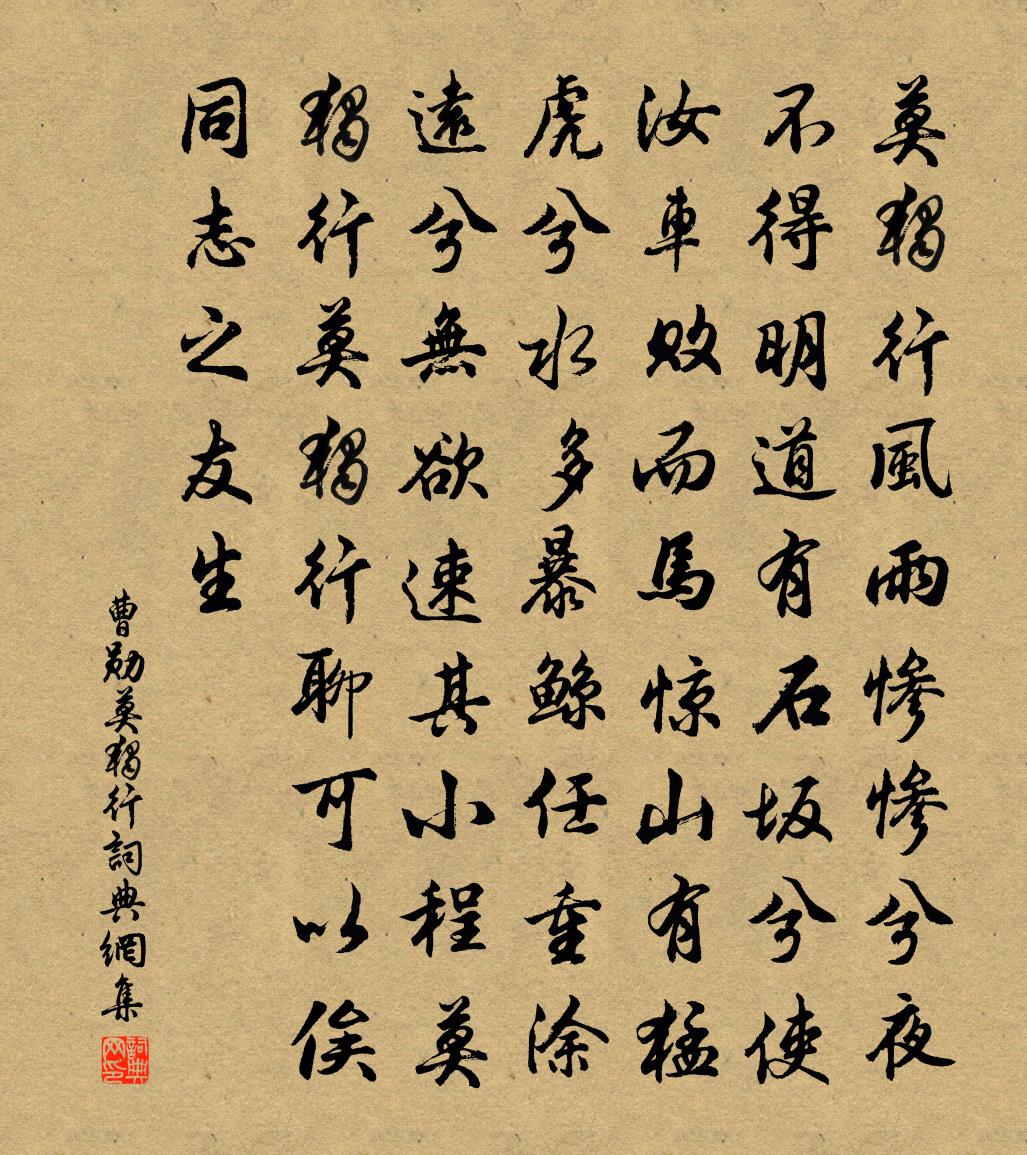 莫獨行風雨慘慘兮夜
不得明道有石坂兮使
汝車敗而馬惊山有猛
虎兮水多暴鲸任重涂
遠兮無欲速其小程莫
獨行莫獨行聊可以俟
同志之友生
曹勛莫獨行詞典網集
詞典网印